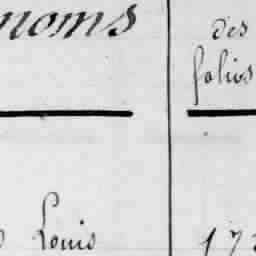 noms
des
folios
Louis